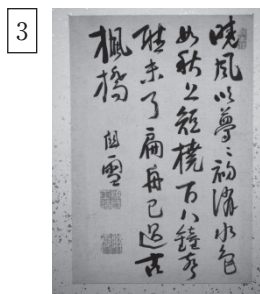 3
曉風吹夢〻初消水色
如秋上短橈百八鐘聲
聴未了扁舟已過古
楓橋
雪